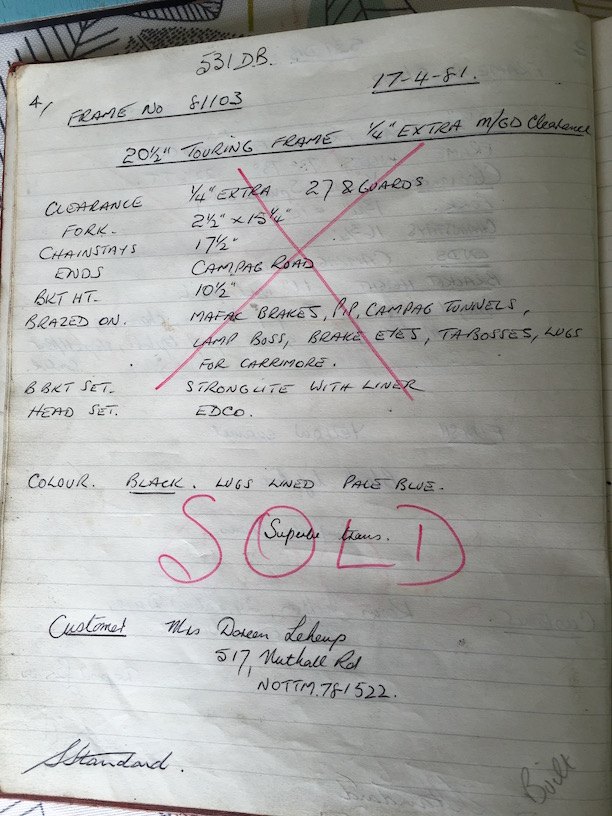 531 D.B.
17-4-81.
4/
FRAME NO 81103
20½" TOURING FRAME ¼" EXTRA M/GD Clearance
CLEARANCE ¼" EXTRA 27 & GUARDS
FORK. 2½" x 15¼"
CHAINSTAYS 17½"
ENDS CAMPAG ROAD
BKT HT. 10½"
BRAZED ON. MAFAC BRAKES, PIP, CAMPAG TUNNELS,
LAMP BOSS, BRAKE EYES, TA BOSSES, LUGS
FOR CARRIMORE.
B BKT SET. STRONGLITE WITH LINER
HEAD SET. EDCO.
COLOUR. BLACK. LUGS LINED PALE BLUE.
SOLD
Superbe trans.
Customer Mrs Doreen Leheup
517, Nuthall Rd
NOTTM. 781522.
Standard.
Built